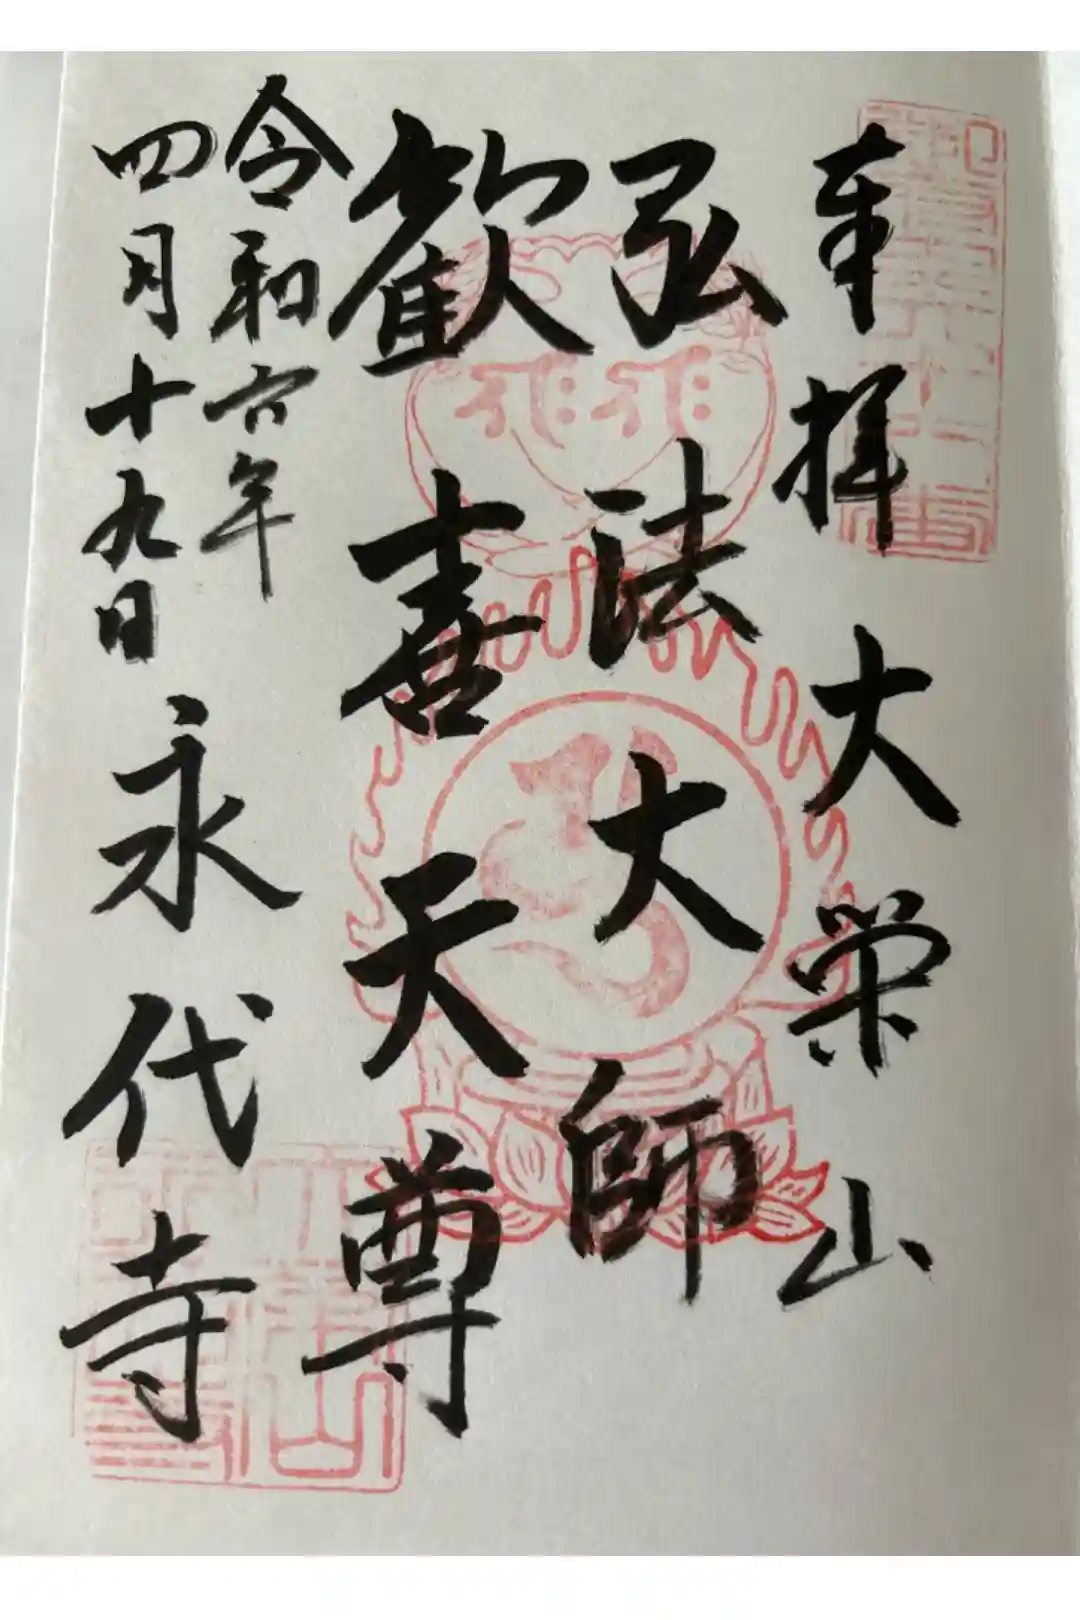 奉拝 大栄山
弘法大師
歓喜天尊
令和六年
四月十九日
永代寺